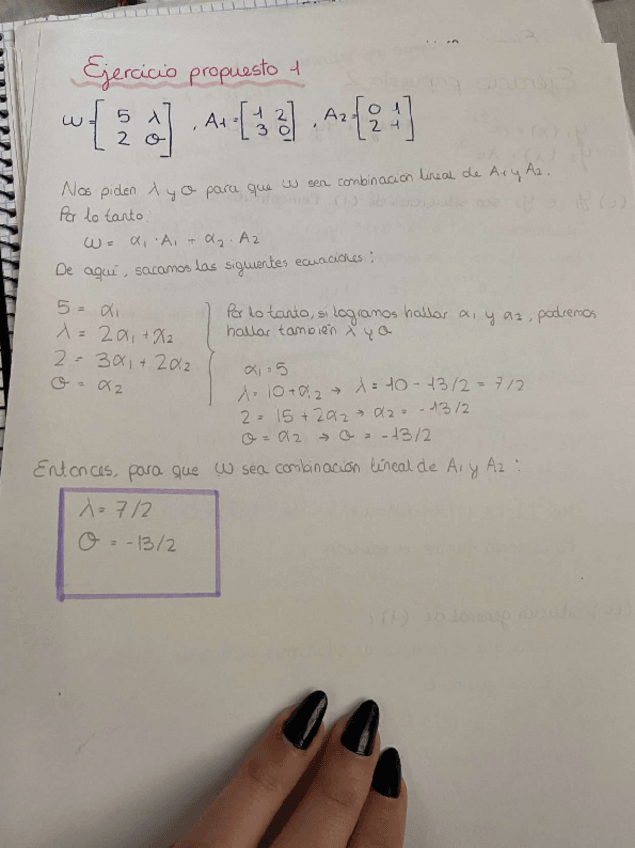 Ejercicio propuesto 1
W = [5 λ; 2 θ], A1 = [1 2; 3 0], A2 = [0 1; 2 1]
Nos piden λ y θ para que W sea combinación lineal de A1 y A2.
Por lo tanto:
W = α1 · A1 + α2 · A2
De aquí, sacamos las siguientes ecuaciones:
5 = α1
λ = 2α1 + α2
2 = 3α1 + 2α2
θ = α2
Por lo tanto, si logramos hallar α1 y α2, podremos
hallar también λ y θ
α1 = 5
λ = 10 + α2 → λ = 10 - 13/2 = 7/2
2 = 15 + 2α2 → α2 = -13/2
θ = α2 → θ = -13/2
Entonces, para que W sea combinación lineal de A1 y A2:
λ = 7/2
θ = -13/2